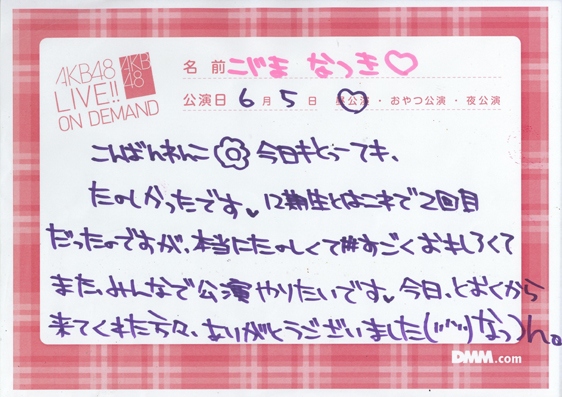 AKB48
LIVE!!
ON DEMAND
AKB
48
名 前 こじま なつき♡
公演日 6月 5日 昼公演・おやつ公演・夜公演
こんばんわんこ 今日もとってもき、
たのしかったです。♥12期生とはこれで2回目
だったのですが、本当にたのしくて##すごくおもしろくて
また、みんなで公演やりたいです。♥今日、とおくから
来てくれた方々、ありがとうございました(〃'〃)なっつん。
DMM.com